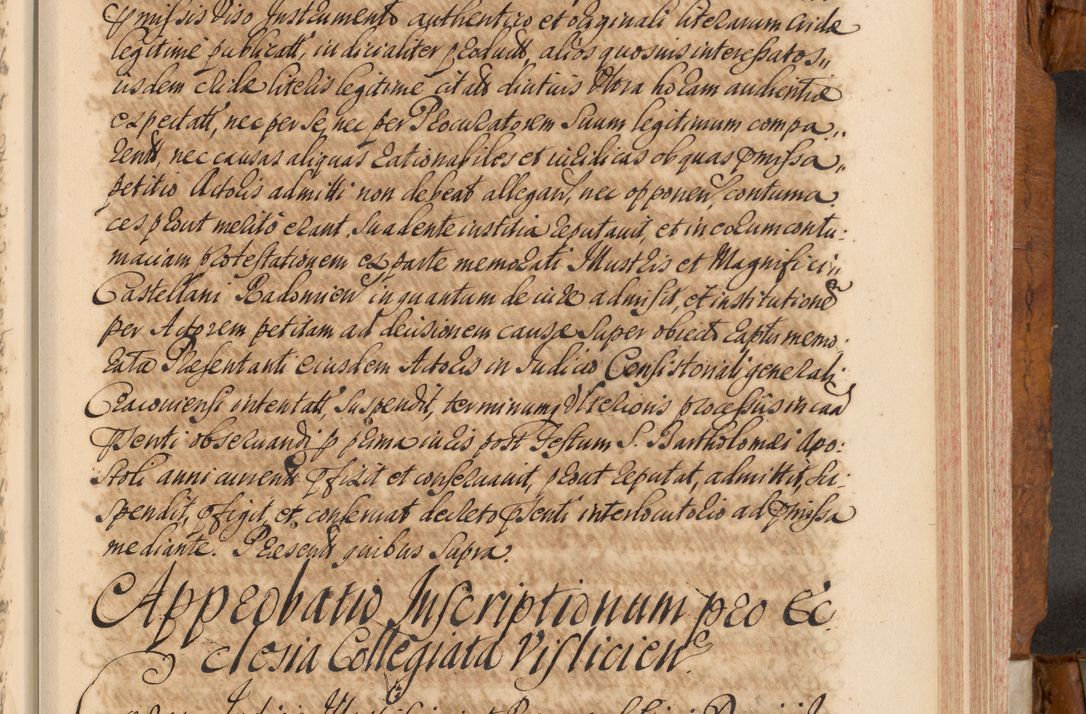 pmissis viso Instrumento authentico et originali literarum cridæ
legitime publicatt, iudicialiter product, alios quosuis interessatos,,
iisdem cridæ literis legitime citats diutius Ultra horam audientiæ
expectatt, nec per se, nec per Procuratorem Suum legitimum compa,,
rents, nec causas aliquas rationabiles et iuridicas ob quas pmissa,,
petitio Actoris admitti non debeat allegans, nec opponens contuma
ces prout merito erant. Suadente iustitia reputauit, et in eorum contu:
maciam protestationem ex parte memorati Illustris et Magnifici,,
Castellani Radomien in quantum de iure admisit, et institutionē
per Actorem petitam ad decisionem causæ Super obiects raptu memo:
ratæ Præsentanti eiusdem Actoris in Iudicio Consistoriali generali
Cracouiensi intentatt, Suspendit, terminumq Ulterioris processus in caa
psenti obseruandi p prima iuris post Festum S. Bartholomæi Apo:
stoli anni currents pfixit et conseruauit, prout reputat, admittit, Su:
spendit, pfigit, et conseruat decreto psenti interlocutorio ad pmissa
mediante. Præsents quibus Supra.
Approbatio Inscriptionum pro Ec
clesia Collegiata Visliciens